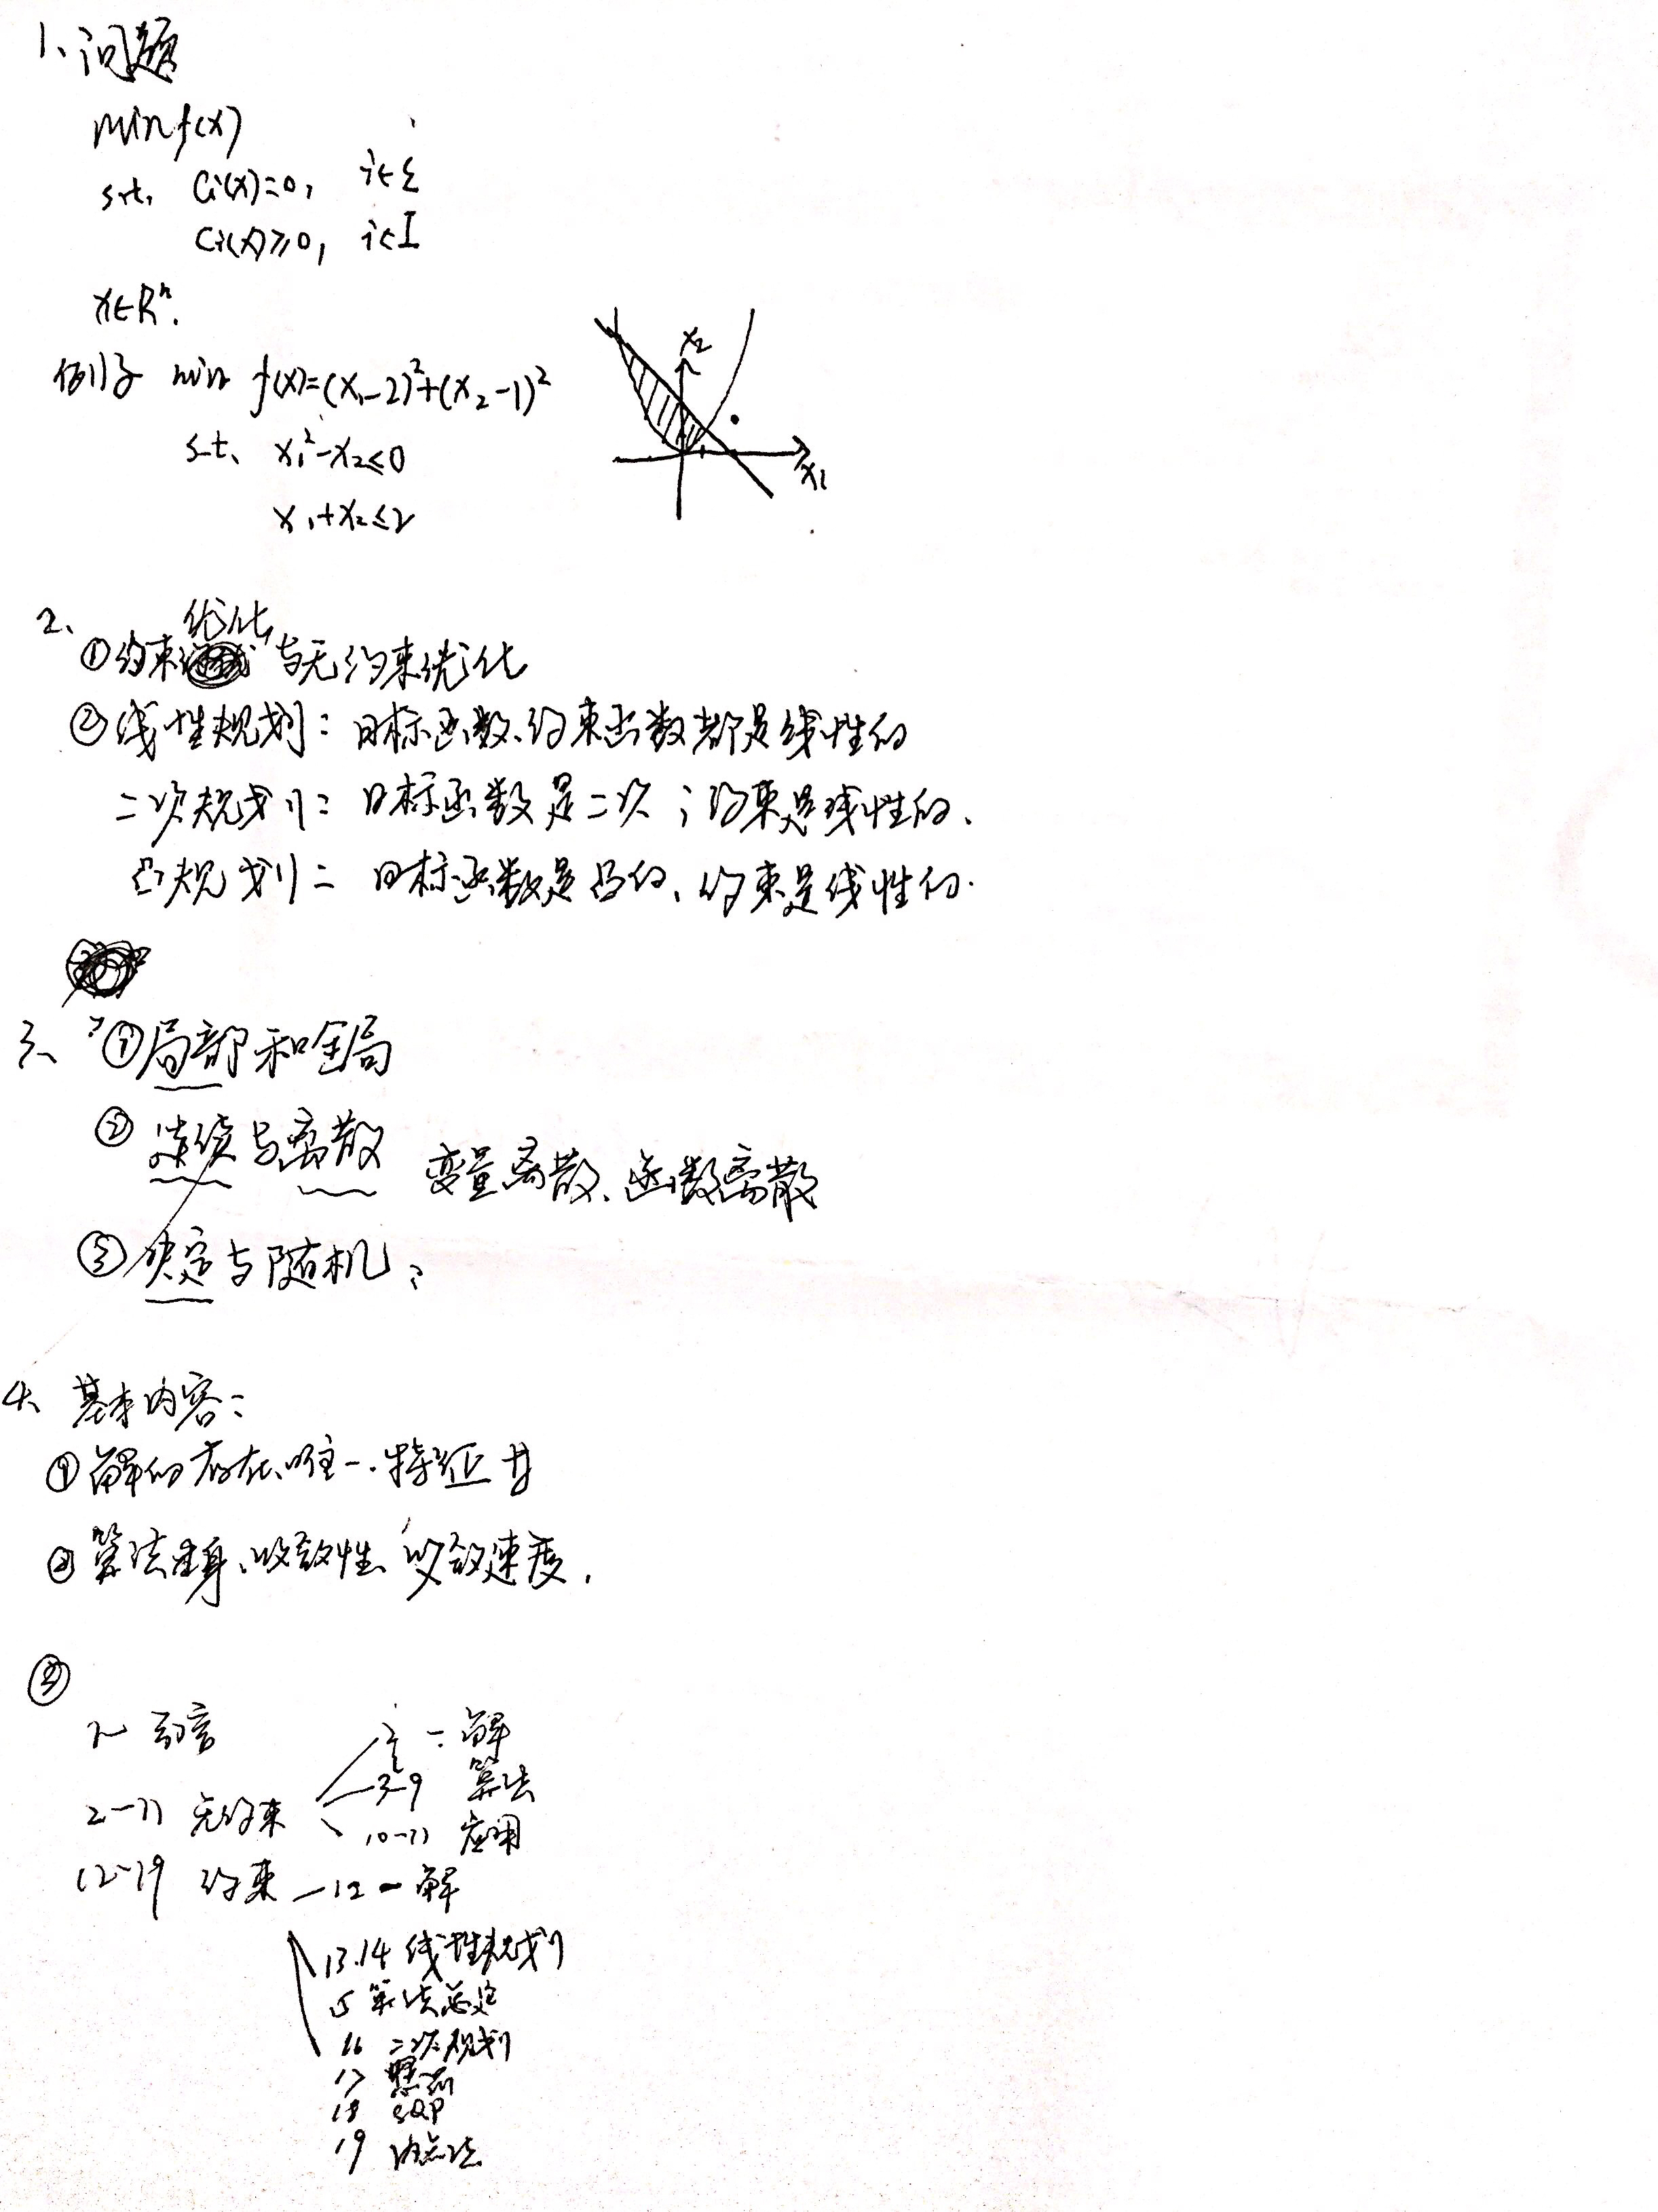 1、问题
min f(x)
s.t. Ci(x)=0, i∈ε
Ci(x)≥0, i∈I
x∈Rⁿ.
例子 min f(x)=(x₁-2)²+(x₂-1)²
s.t. x₁²-x₂≤0
x₁+x₂≤2
x₂
x₁
2、
优化
①约束 与无约束优化
②线性规划: 目标函数、约束函数都是线性的
二次规划: 目标函数是二次; 约束是线性的、
凸规划: 目标函数是凸的、约束是线性的.
3、①局部和全局
②连续与离散 变量离散、函数离散
③决定与随机:
4、基本内容:
①解的存在、唯一、特征
②算法本身、收敛性、收敛速度.
1、引言
2-11 无约束
2 - 解
3-9 算法
10-11 应用
12-19 约束 -12-解
13.14 线性规划
15 算法
16 二次规划
17
18 SQP
19 内点法